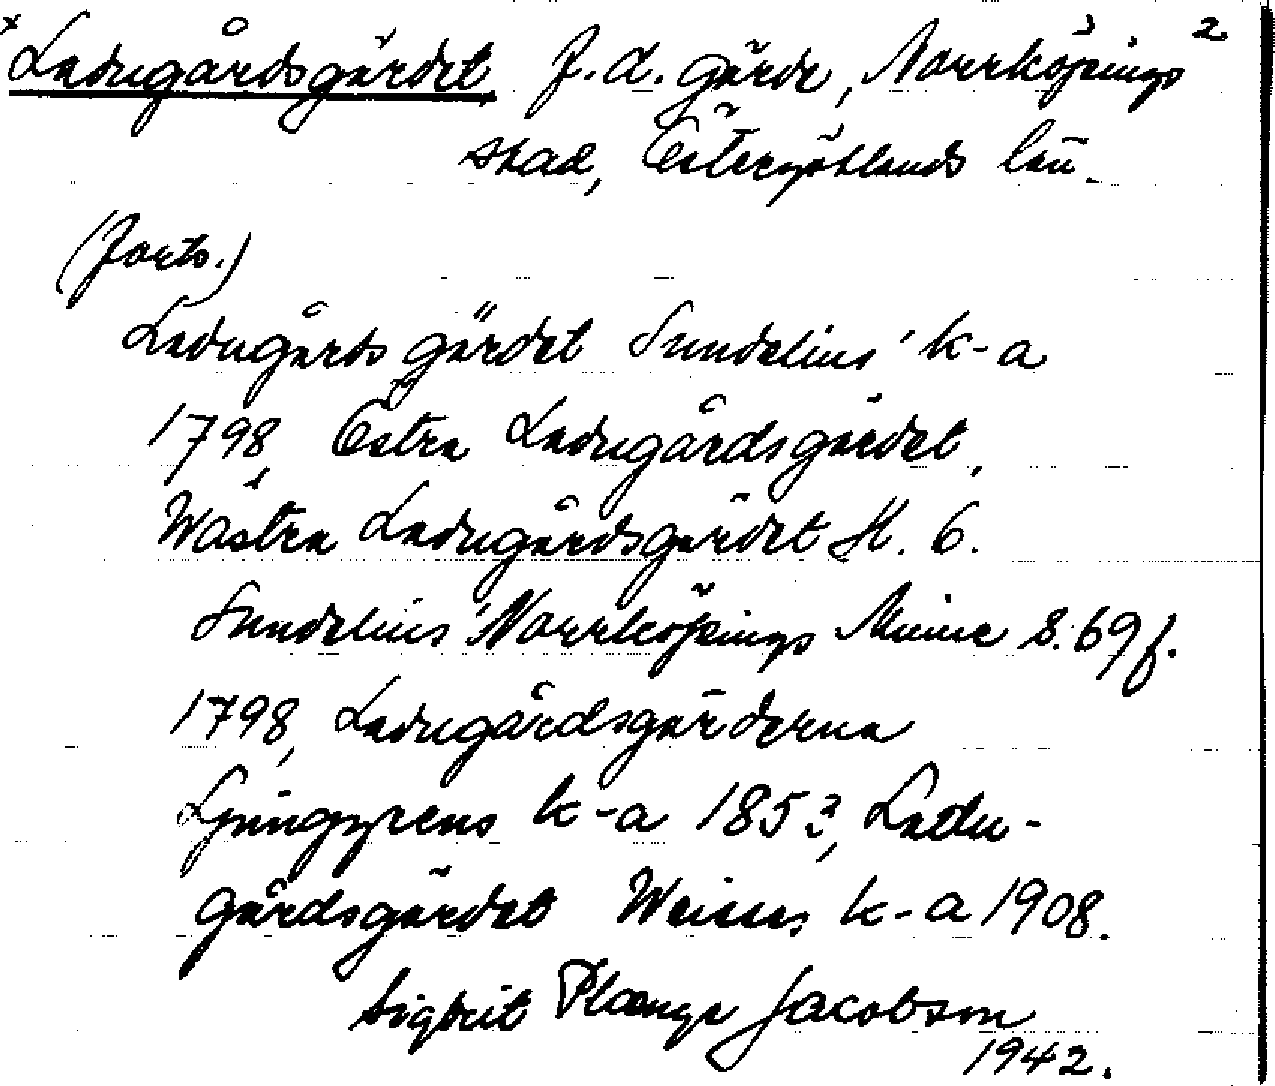 x Ladugårdsgärdet, f.d. gärde, Norrköpings 2
stad, Östergötlands län.
(Forts.)
Ladugårds gärdet Sundelius' k-a
1798, Östra Ladugårdsgärdet,
Wästra Ladugårdsgärdet St. 6.
Sundelius' Norrköpings Minne s. 69 f.
1798, Ladugårdsgärderna
Ljunggrens k-a 1853, Ladu-
gårdsgärdet Weines k-a 1908.
Sigbrit Plænge Jacobson
1942.